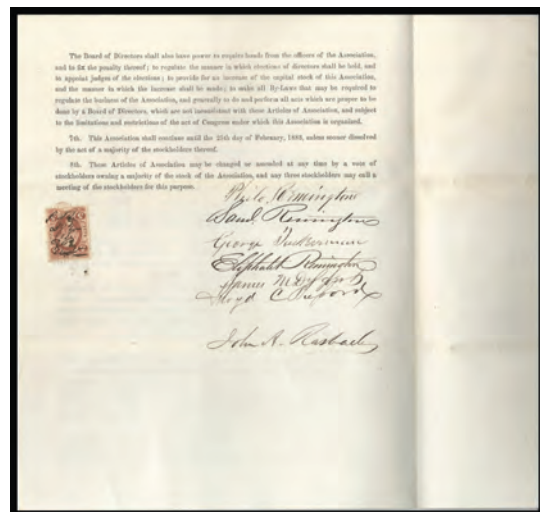 The Board of Directors shall also have power to require bonds from the officers of the Association,
and to fix the penalty thereof; to regulate the manner in which elections of directors shall be held, and
to appoint judges of the elections; to provide for an increase of the capital stock of this Association,
and the manner in which the increase shall be made; to make all By-Laws that may be required to
regulate the business of the Association, and generally to do and perform all acts which are proper to be
done by a Board of Directors, which are not inconsistent with these Articles of Association, and subject
to the limitations and restrictions of the act of Congress under which this Association is organized.
7th. This Association shall continue until the 25th day of February, 1883, unless sooner dissolved
by the act of a majority of the stockholders thereof.
8th. These Articles of Association may be changed or amended at any time by a vote of
stockholders owning a majority of the stock of the Association, and any three stockholders may call a
meeting of the stockholders for this purpose.
Philo Remington
Saml. Remington
George Tuckerman
Eliphalet Remington
James M.
Floyd C.
John A. Rasbach